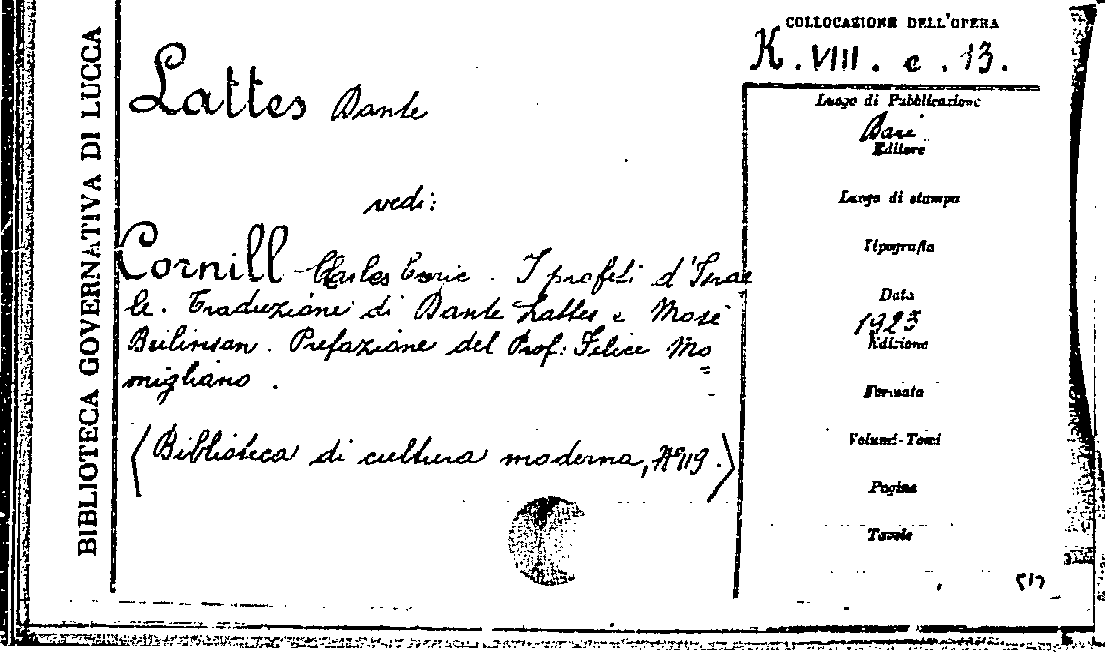 BIBLIOTECA GOVERNATIVA DI LUCCA
COLLOCAZIONE DELL'OPERA
K. VIII. c. 13.
Lattes Dante
vedi:
Cornill Carlo I profeti d'Israe
le. Traduzione di Dante Lattes e Mosè
Beilinson. Prefazione del Prof. Felice Mo=
migliano.
(Biblioteca di cultura moderna, N° 119.)
Luogo di Pubblicazione
Bari
Editore
Luogo di stampa
Tipografia
Data
1923
Edizione
Formato
Volumi-Tomi
Pagine
Tavole